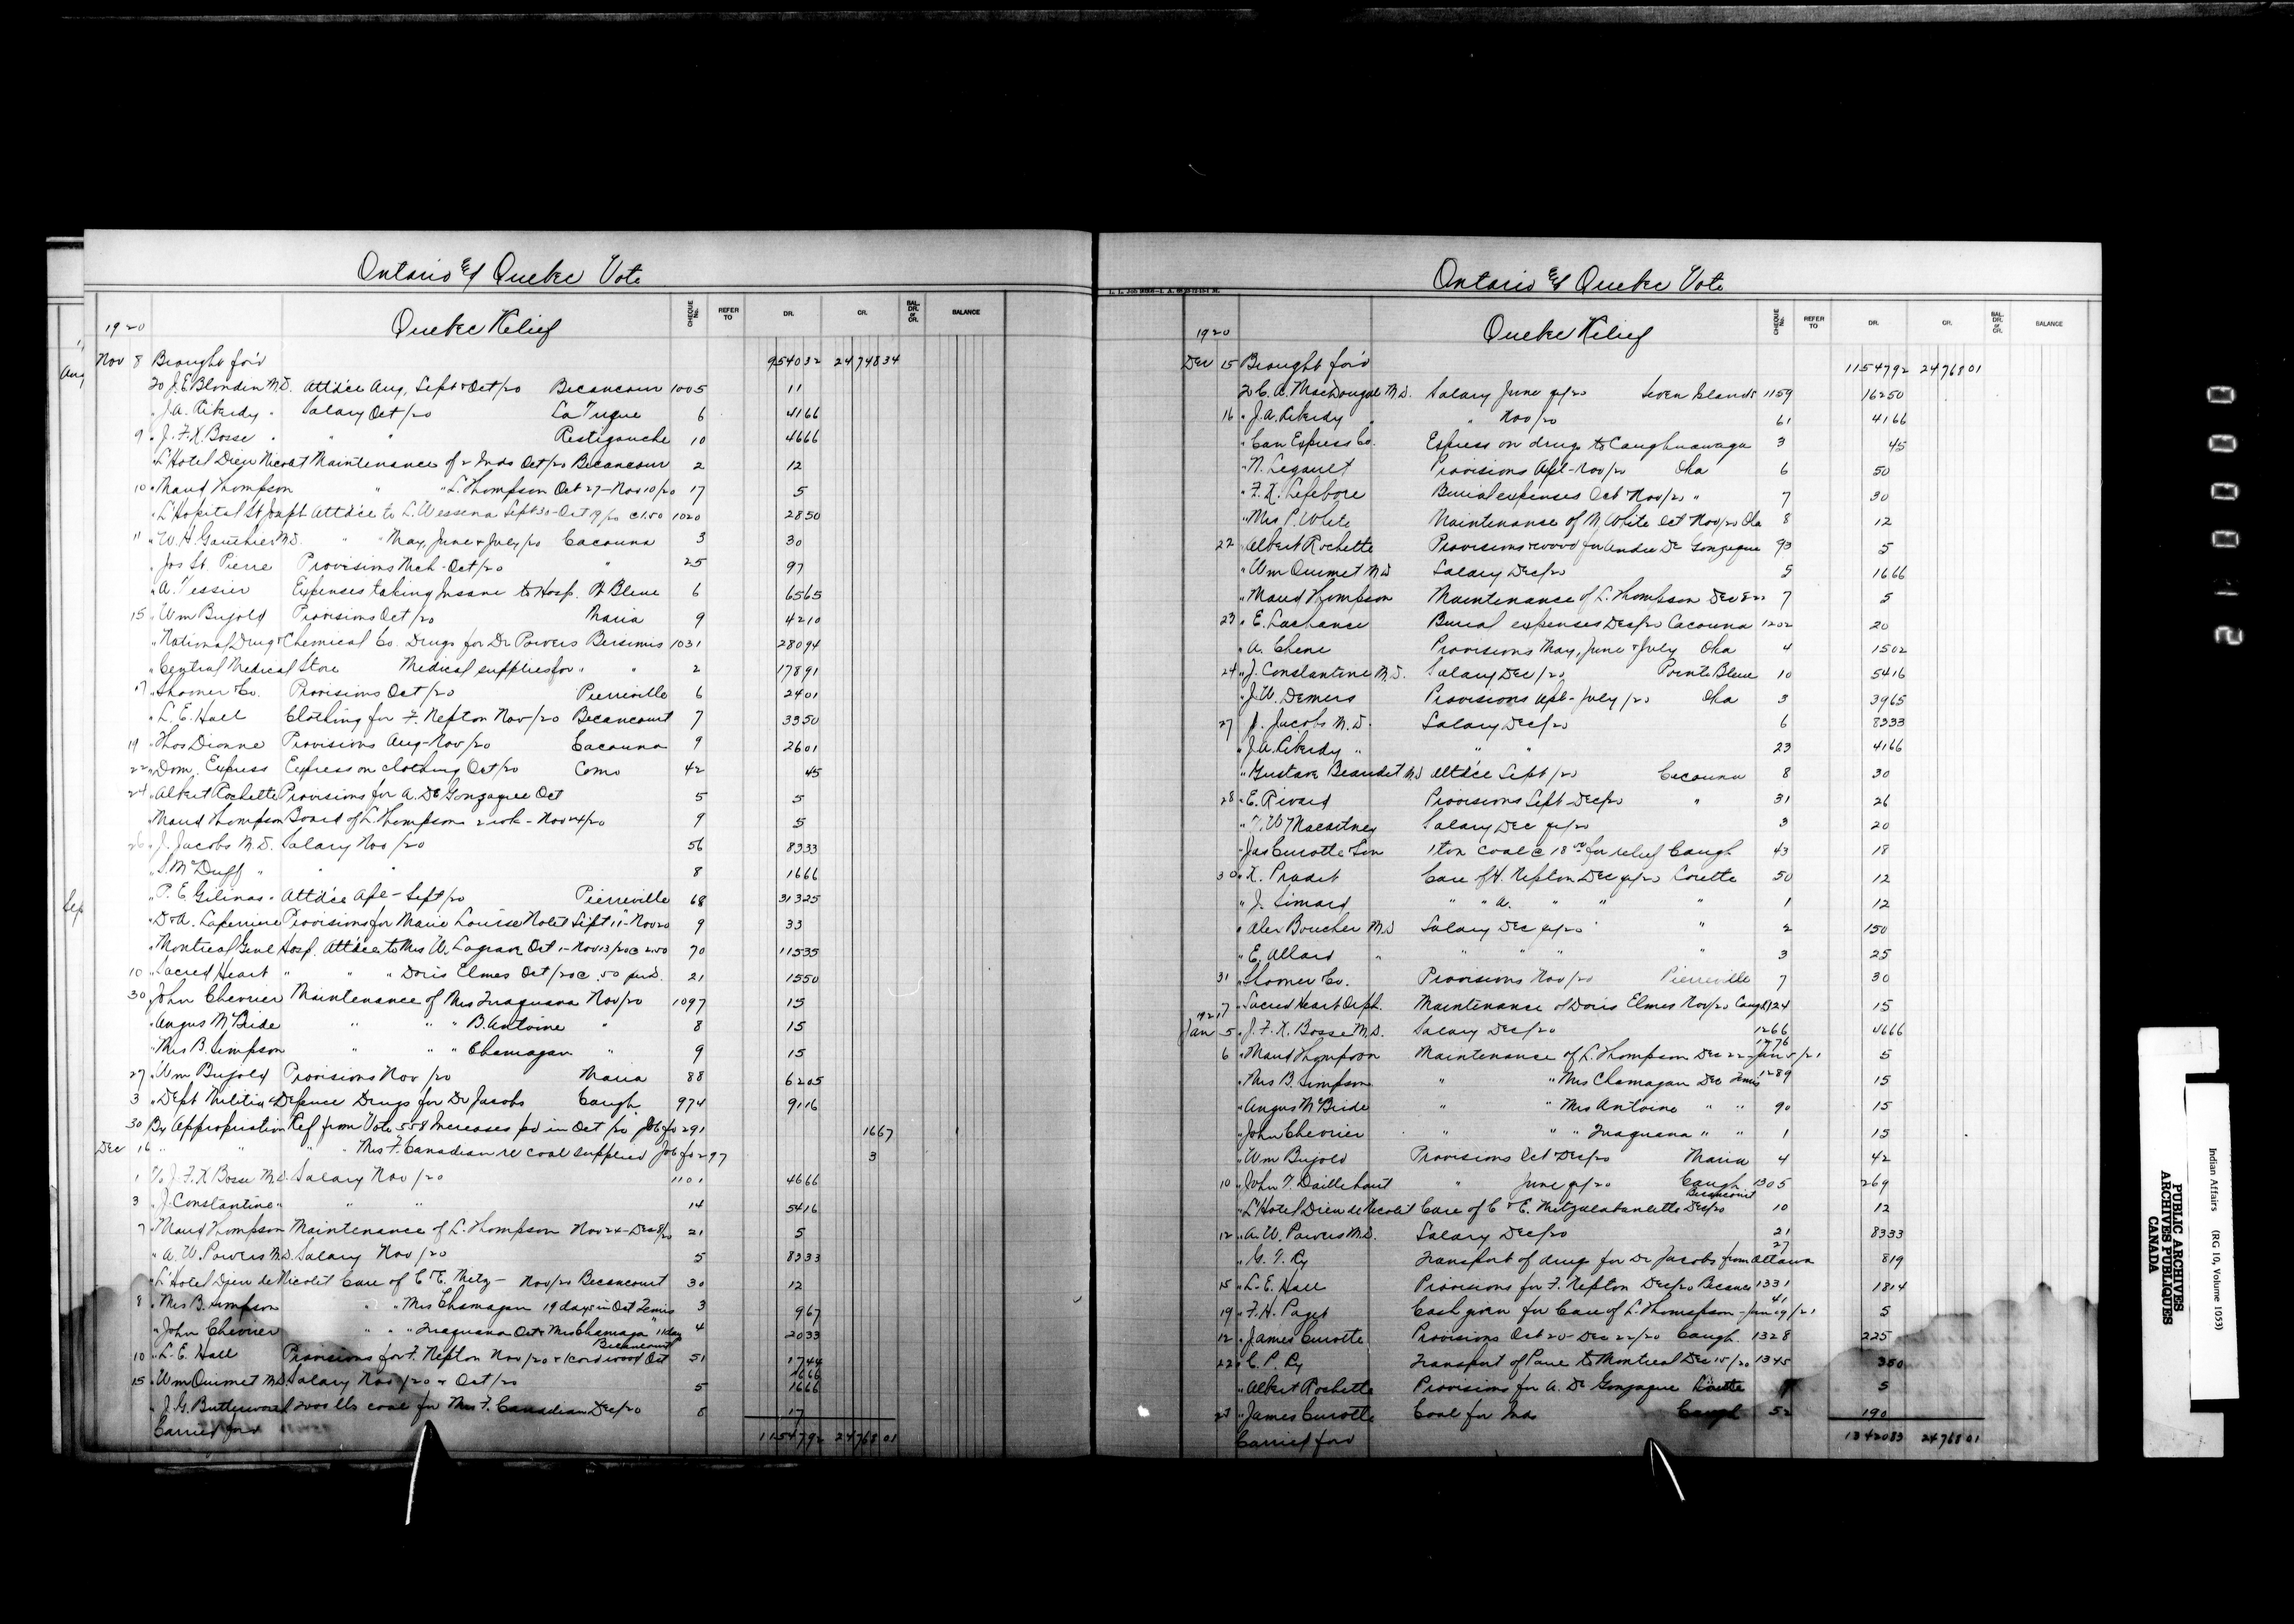 Ontario & Quebec Vote
1920 Quebec Relief CHEQUE No. REFER TO DR. CR. BAL. DR. or CR. BALANCE
Nov 8 Brought for'd 954032 2474834
To J.E. Blondin M.D. Attd'ce Aug, Sept & Oct/20 Becancour 1005 11
" J.A. Riberdy " Salary Oct/20 La Tuque 6 4166
9 " J.F.X. Bosse " " " Restigouche 10 4666
" L'Hotel Dieu Nicolet Maintenance of 2 Inds Oct/20 Becancour 2 12
10 " Maud Thompson " " L. Thompson Oct 27-Nov 10/20 17 5
" L'Hopital St Joseph Attd'ce to L. Wessena Sept 30-Oct 19/20 @ 1.50 1020 2850
11 " W.H. Gauthier M.D. " " May, June & July/20 Cacouna 3 30
" Jos St. Pierre Provisions Mch-Oct/20 " 25 97
" A. Tessier Expenses taking Insane to Hosp. Pt Bleue 6 6565
15 " Wm Bujold Provisions Oct/20 Maria 9 4210
" National Drug & Chemical Co. Drugs for Dr Powers Bersimis 1031 28094
" Central Medical Store Medical supplies for " " 2 17891
17 " Shooner & Co. Provisions Oct/20 Pierreville 6 2401
" L.E. Hall Clothing for F. Nepton Nov/20 Becancourt 7 3350
19 " Thos Dionne Provisions Aug-Nov/20 Cacouna 9 2601
22 " Dom. Express Express on clothing Oct/20 Como 42 45
24 " Albert Rochette Provisions for A. De Gonzague Oct 5 5
" Maud Thompson Board of L. Thompson 2 wk- Nov 24/20 9 5
26 " J. Jacobs M.D. Salary Nov/20 56 8333
" S. McDuff " " " 8 1666
" P.E. Gelinas " Attd'ce Apl-Sept/20 Pierreville 68 31325
" D & A. Laperrine Provisions for Marie Louise Nolet Sept 11-Nov 20 9 33
" Montreal Genl Hosp. Attd'ce to Mrs W. Lagrave Oct 1-Nov 13/20 @ 2.50 70 11535
10 " Sacred Heart " " " Doris Elmes Oct/20 @ .50 per d. 21 1550
30 " John Chevrier Maintenance of Mrs Inaguana Nov/20 1097 15
" Angus McBride " " " B. Antoine " 8 15
" Mrs B. Simpson " " " Chamagan " 9 15
27 " Wm Bujold Provisions Nov/20 Maria 88 6205
3 " Dept Militia & Defence Drugs for Dr Jacobs Caugh. 974 9116
30 By Appropriation Ref from Vote 558 Increases pd in Oct/20 Job fo 291 1667
Dec 16 " " " " Mrs F. Canadian re coal supplied Job fo 297 3
1 To J.F.X. Bosse M.D. Salary Nov/20 1101 4666
3 " J. Constantine " " " 14 5416
7 " Maud Thompson Maintenance of L. Thompson Nov 24-Dec 8/20 21 5
" A.W. Powers M.D. Salary Nov/20 5 8333
" L'Hotel Dieu de Nicolet Care of C & E. Metz- Nov/20 Becancourt 30 12
8 " Mrs B. Simpson " " Mrs Chamagan 19 days in Oct Temis 3 967
" John Chevrier " " " Inaguana Oct & Mrs Chamaga " 11 day 4 2033
10 " L.E. Hall Provisions for F. Nepton Nov/20 & 1 cord wood Oct Becancourt 51 1744
15 " Wm Ouimet M.D. Salary Nov/20 & Oct/20 5 1666 1666
" J.G. Butterworth 2000 lbs coal for Mrs F. Canadian Dec/20 8 17
Carried for'd 1154792 2476801
Aug
Sep
L. I. Job
Ontario & Quebec Vote
1920 Quebec Relief CHEQUE No. REFER TO DR. CR. BAL. DR. or CR. BALANCE
Dec 15 Brought for'd 1154792 2476801
To C.A. MacDougal M.D. Salary June qr/20 Seven Islands 1159 16250
16 " J.A. Riberdy " " Nov/20 61 4166
" Can Express Co. Express on drugs to Caughnawaga 3 45
" N. Legault Provisions Apl-Nov/20 Oka 6 50
" F.X. Lefebvre Burial expenses Oct Nov/20 " 7 30
" Mrs P. White Maintenance of M. White Oct Nov/20 Oka 8 12
22 " Albert Rochette Provisions & wood for Andre De Gonzague 93 5
" Wm Ouimet M.D. Salary Dec/20 5 1666
" Maud Thompson Maintenance of L. Thompson Dec 8-22 7 5
23 " E. Lachance Burial expenses Dec/20 Cacouna 1202 20
" A. Chene Provisions May, June & July Oka 4 1502
24 " J. Constantine M.D. Salary Dec/20 Pointe Bleue 10 5416
" J.W. Demers Provisions Apl-July/20 Oka 3 3965
27 " J. Jacobs M.D. Salary Dec/20 6 8333
" J.A. Riberdy " " " 23 4166
" Gustave Beaudet M.D. Attd'ce Sept/20 Cacouna 8 30
28 " E. Rivard Provisions Sept-Dec/20 " 31 26
" T.W. Macartney Salary Dec qr/20 3 20
" Jas Curotte & Son 1 ton Coal @ 18.00 for relief Caugh 43 18
30 " X. Pradet Care of H. Nepton Dec qr/20 Lorette 50 12
" J. Simard " " A. " " " 1 12
" Alex Boucher M.D. Salary Dec qr/20 " 2 150
" E. Allard " " " " " 3 25
31 " Shooner & Co. Provisions Nov/20 Pierreville 7 30
7 " Sacred Heart Orph. Maintenance of Doris Elmes Nov/20 Caugh 1124 15
1921
Jan 5 " J.F.X. Bosse M.D. Salary Dec/20 1266 4666
6 " Maud Thompson Maintenance of L. Thompson Dec 22-Jan 5/21 1276 5
" Mrs B. Simpson " " Mrs Chamagan Dec Temis 1289 15
" Angus McBride " " Mrs Antoine " " 90 15
" John Chevrier " " " Inaguana " " 1 15
" Wm Bujold Provisions Oct Dec/20 Maria 4 42
10 " John T. Daillebout " June qr/20 Caugh 1305 269
" L'Hotel Dieu de Nicolet Care of C & E. Metzalabanlette Dec/20 Becancourt 10 12
12 " A.W. Powers M.D. Salary Dec/20 21 8333
" G.T. Ry Transport of drugs for Dr Jacobs from Ottawa 27 819
15 " L.E. Hall Provisions for F. Nepton Dec/20 Becanc 1331 1814
19 " F.H. Paget Cash given for Care of L. Thompson-Jan 19/21 41 5
12 " James Curotte Provisions Oct 20-Dec 22/20 Caugh. 1328 225
22 " C.P. Ry Transport of Pane to Montreal Dec 15/20 1345 350
" Albert Rochette Provisions for A. De Gonzague Lorette 5
27 " James Curotte Coal for Inds Caugh 52 190
Carried for'd 1342083 2476801
Indian Affairs (RG 10, Volume 1053)
PUBLIC ARCHIVES
ARCHIVES PUBLIQUES
CANADA